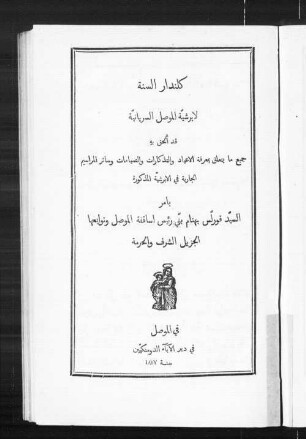 كلندار السنة
لابرشيّة الموصل السريانيّة
قد أُلحق به
جميع ما يتعلق بمعرفة الاعياد والتذكارات والصيامات وسائر المراسيم
الجارية في الابرشيّة المذكورة
بامر
السيّد قورلّس بهنام بنّي رئيس اساقفة الموصل وتوابعها
الجزيل الشرف والحرمة
في الموصل
في دير الآباء الدومنكيّين
سنة ١٨٧٧